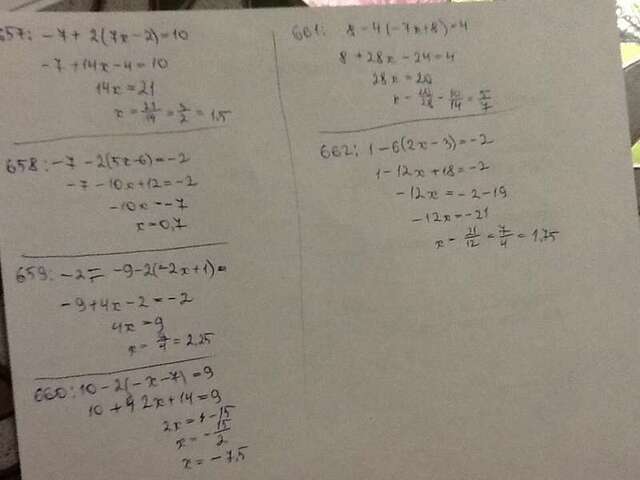 657: -7 + 2(7x-2)=10
-7+14x-4=10
14x=21
x= 21/14 = 3/2 = 1,5
658: -7 -2(5x-6)=-2
-7-10x+12=-2
-10x=-7
x=0,7
659: -2= -9-2(-2x+1)=
-9+4x-2=-2
4x=9
x= 9/4 = 2,25
660: 10-2(-x-7)=9
10+ 2x+14=9
2x= -15
x= -15/2
x= -7,5
661: 8-4(-7x+8)=4
8+28x-24=4
28x=20
x- 28 - 10/14 = 5/7
662: 1-6(2x-3)=-2
1-12x+18=-2
-12x=-2-19
-12x=-21
x- 21/12 = 7/4 = 1,75